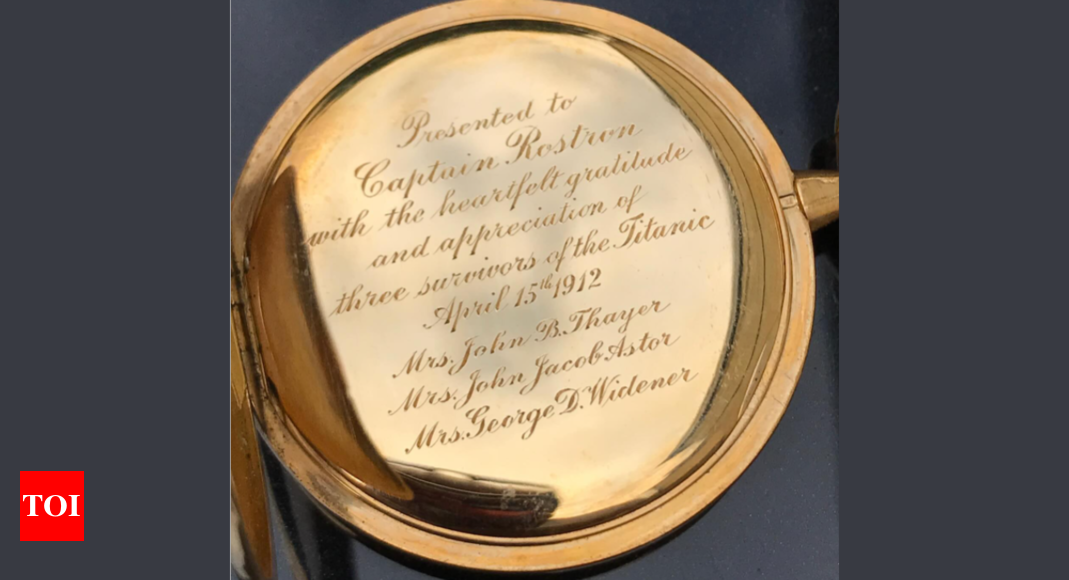 Presented to
Captain Rostron
with the heartfelt gratitude
and appreciation of
three survivors of the Titanic
April 15th 1912
Mrs. John B. Thayer
Mrs. John Jacob Astor
Mrs. George D. Widener
TOI